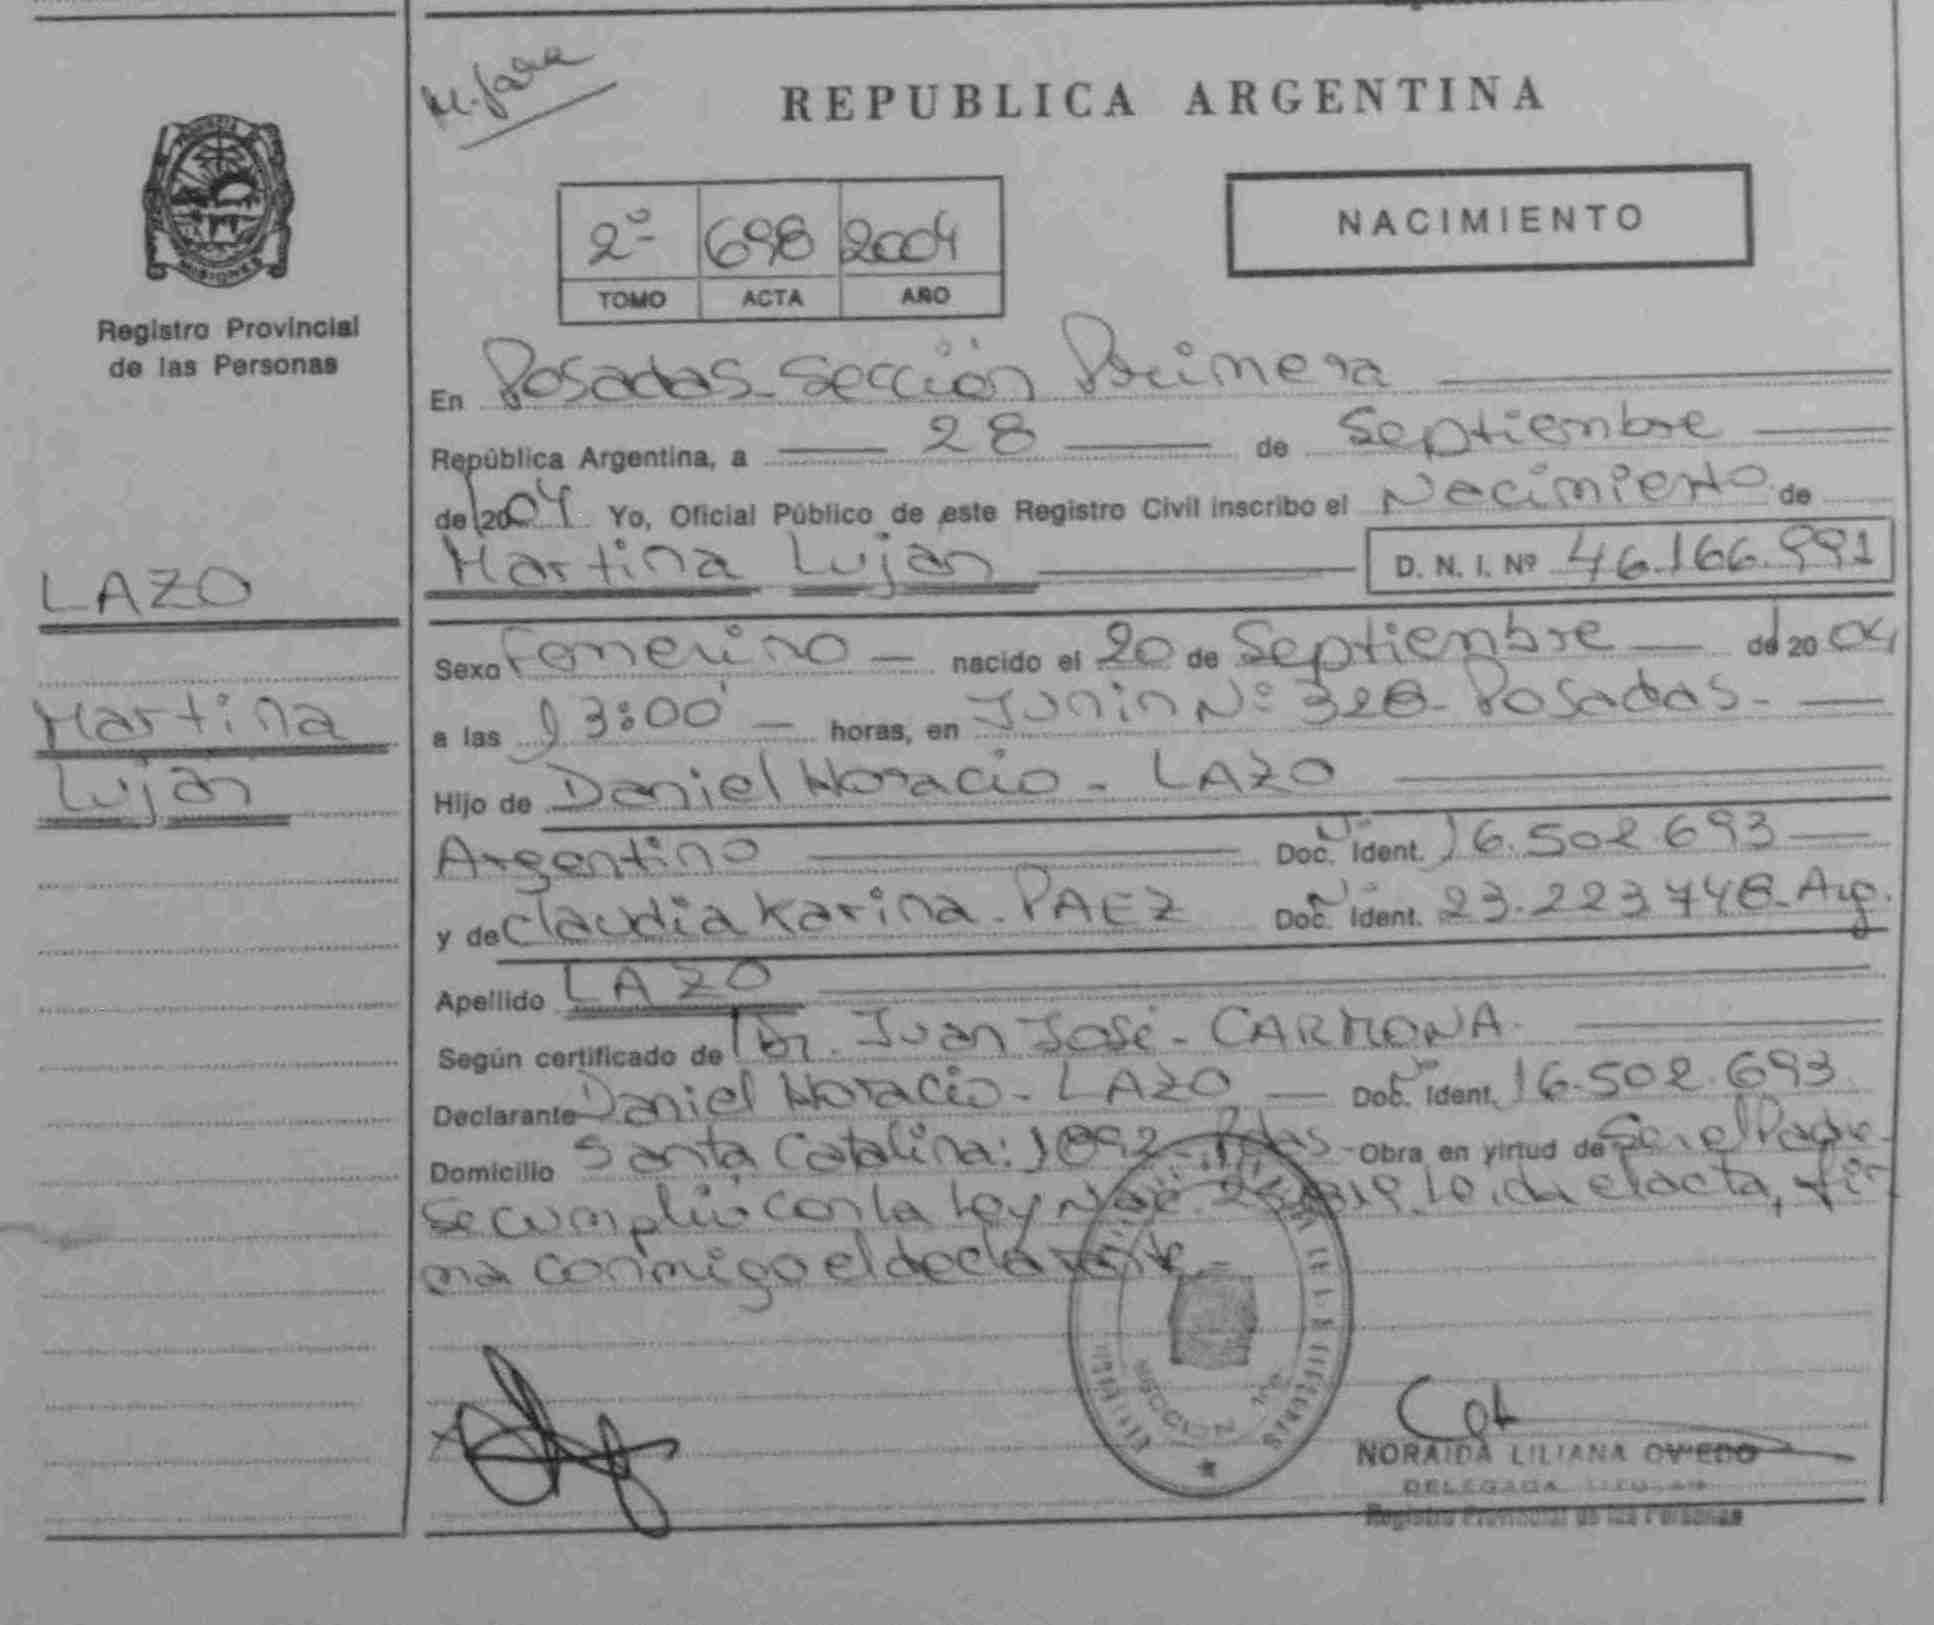 REPUBLICA ARGENTINA
MISIONES
Registro Provincial
de las Personas
2º 698 2004
TOMO ACTA AÑO
NACIMIENTO
En Posadas - Sección Primera
República Argentina, a 28 de Septiembre
de 2004 Yo, Oficial Público de este Registro Civil inscribo el Nacimiento de
Martina Luján D. N. I. Nº 46.166.991
LAZO
Martina
Luján
Sexo Femenino - nacido el 20 de Septiembre de 2004
a las 13:00 - horas, en Junin Nº 328 - Posadas -
Hijo de Daniel Horacio - LAZO
Argentino Doc. Ident. 16.502.693
y de Claudia Karina - PAEZ Doc. Ident. 23.223.748 - Arg.
Apellido LAZO
Según certificado de Dr. Juan José - CARMONA
Declarante Daniel Horacio - LAZO - Doc. Ident. 16.502.693
Domicilio Santa Catalina: 1892 - Pdas - Obra en virtud de Ser el Padre -
Se cumplió con la Ley Leida el acta, fir-
ma conmigo el declarante -
NORAIDA LILIANA OVIEDO
DELEGADA TITULAR
Registro Provincial de las Personas